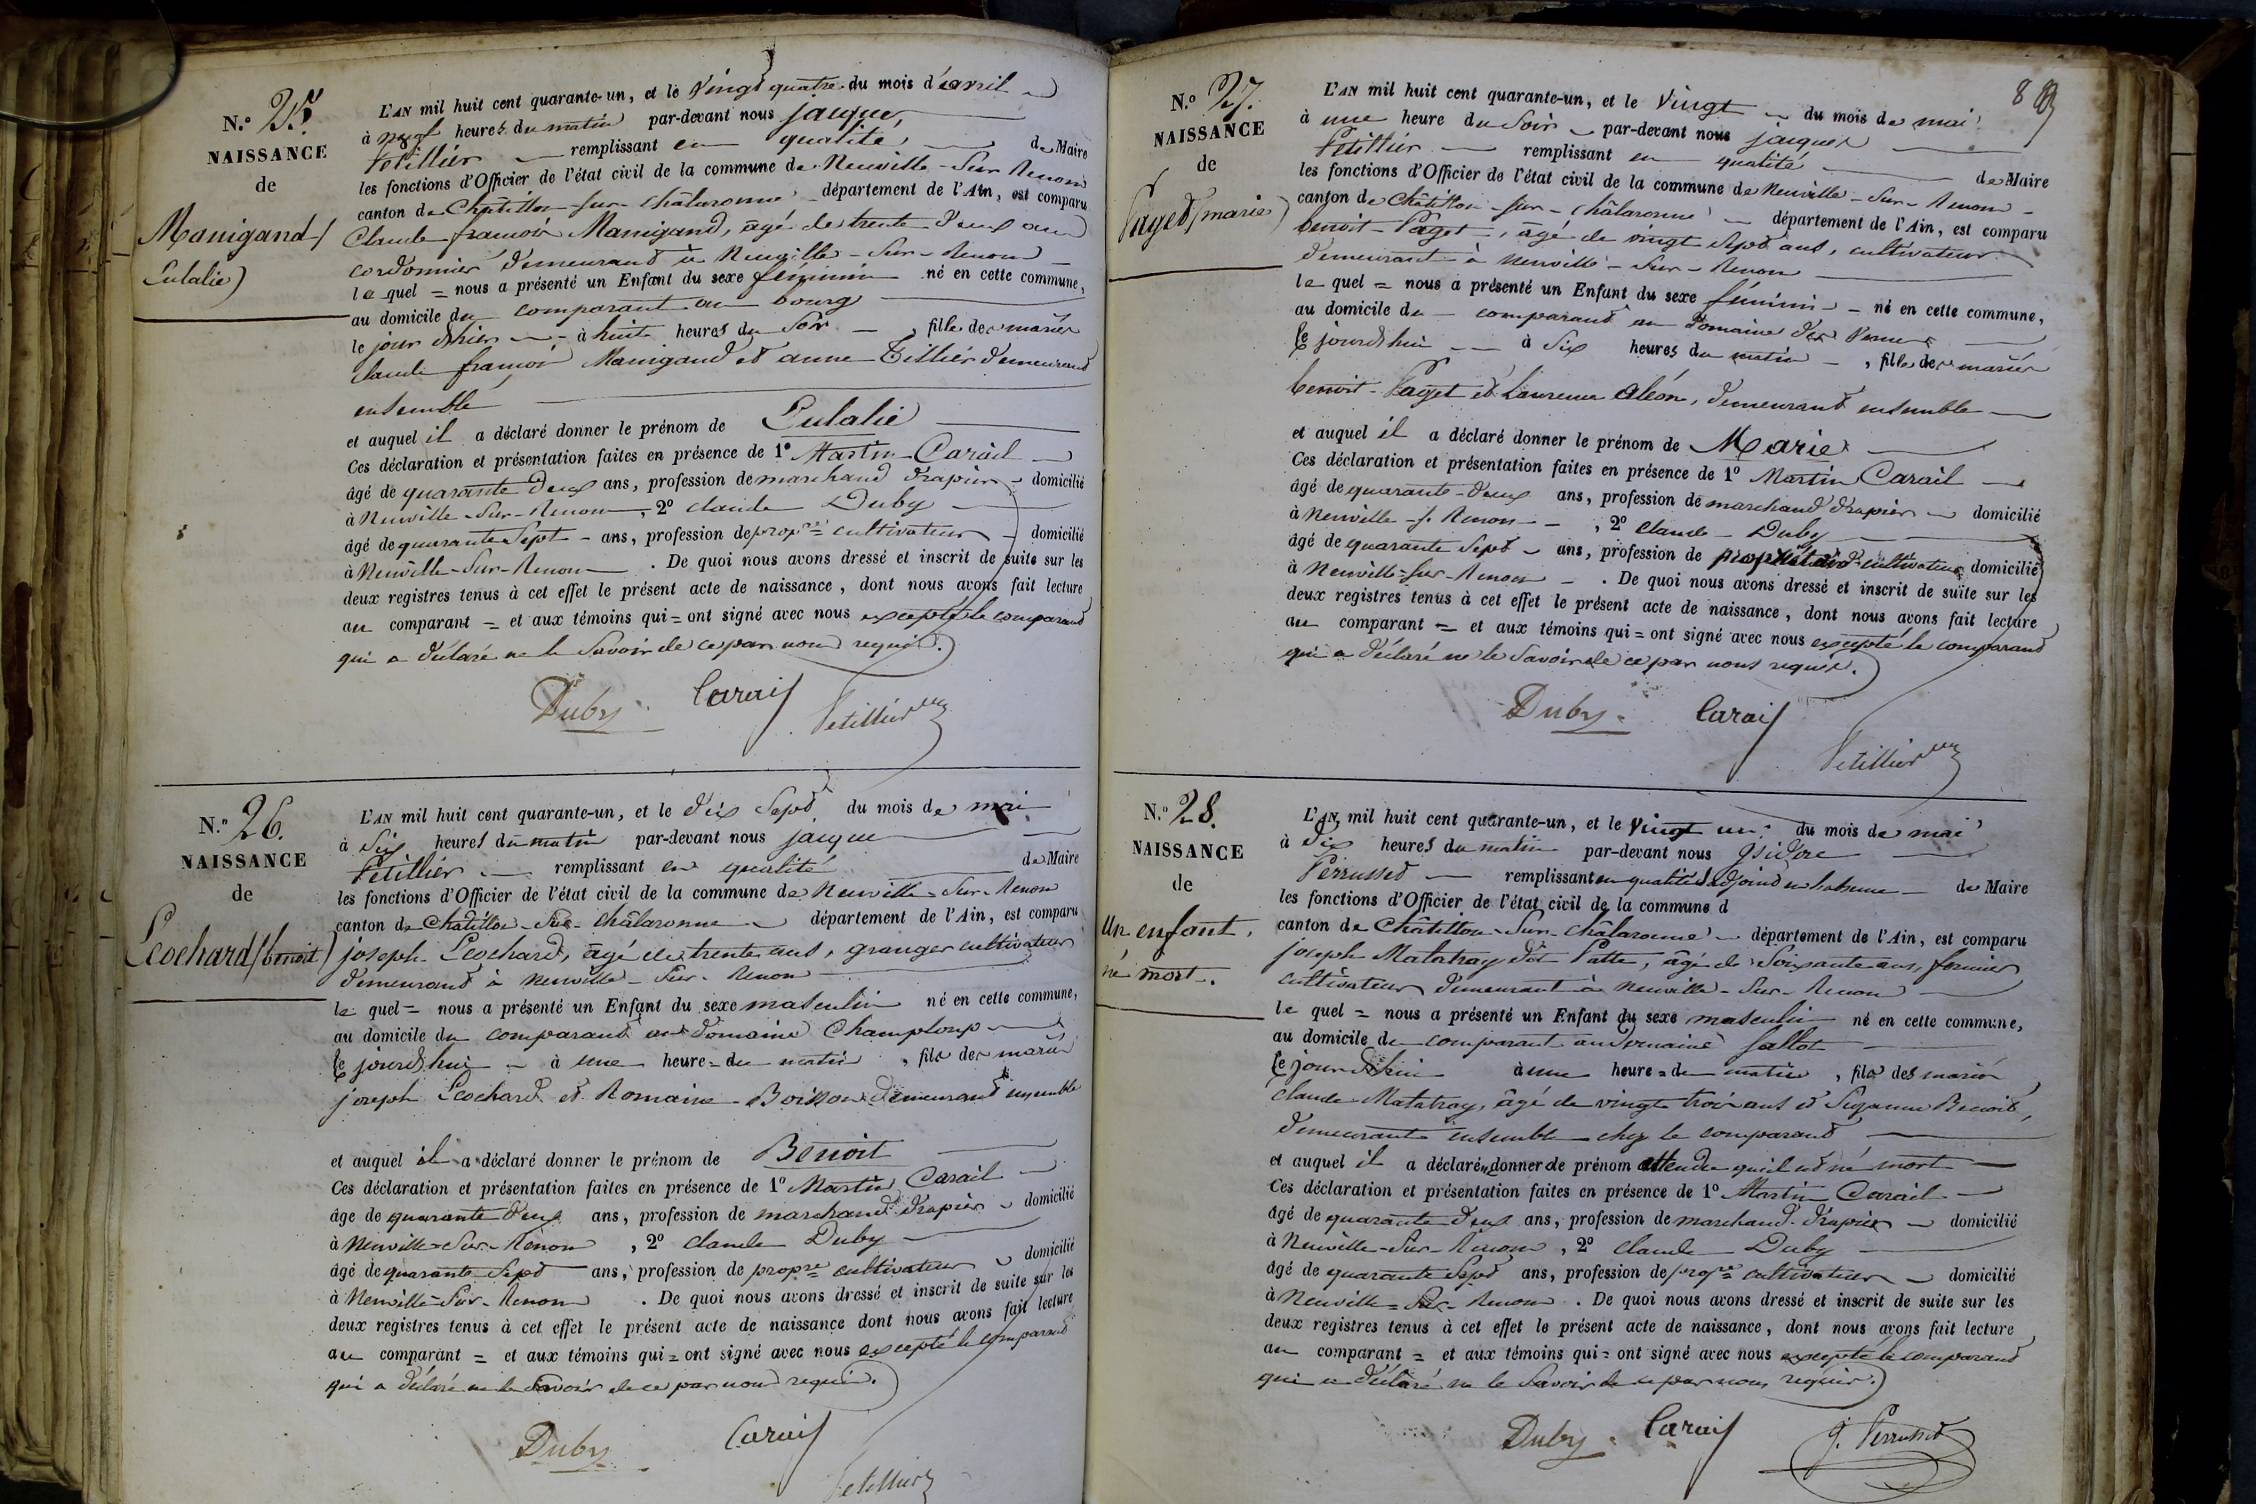 N.o 25.
NAISSANCE
de
Manigand (
Eulalie)
L'AN mil huit cent quarante-un, et le vingt quatre du mois d'avril
à neuf heures du matin par-devant nous jacques
Petillier remplissant en qualité de Maire
les fonctions d'Officier de l'état civil de la commune de Neuville-Sur-Renom
canton de Châtillon-sur-châlaronne département de l'Ain, est comparu
Claude françois Manigand, âgé de trente deux ans
cordonnier demeurant à Neuville-Sur-Renom
le quel = nous a présenté un Enfant du sexe féminin né en cette commune,
au domicile du comparant au bourg
le jour d'hier à huit heures du Soir, fille des mariés
claude françois Manigand et anne Tillier demeurant
ensemble
et auquel il a déclaré donner le prénom de Eulalie
Ces déclaration et présentation faites en présence de 1o Martin Carail
âgé de quarante deux ans, profession de marchand drapier domicilié
à Neuville-Sur-Renom, 2o claude Duby
âgé de quarante Sept ans, profession de propre cultivateur domicilié
à Neuville-Sur-Renom. De quoi nous avons dressé et inscrit de suite sur les
deux registres tenus à cet effet le présent acte de naissance, dont nous avons fait lecture
au comparant = et aux témoins qui = ont signé avec nous excepté le comparant
qui a déclaré ne le Savoir de ce par nous requis.
Duby Carail Petillier
N.o 26.
NAISSANCE
de
Leochard (benoit)
L'AN mil huit cent quarante-un, et le dix Sept du mois de mai
à Six heures du matin par-devant nous jacque
Petillier remplissant en qualité de Maire
les fonctions d'Officier de l'état civil de la commune de Neuville-Sur-Renom
canton de Châtillon-Sur-châlaronne département de l'Ain, est comparu
joseph Leochard, âgé de trente ans, granger cultivateur
demeurant à Neuville-Sur-Renom
le quel = nous a présenté un Enfant du sexe masculin né en cette commune,
au domicile du comparant au domaine Champloup
le jourd'hui à une heure = du matin, fils des mariés
joseph Leochard et Romaine Boisson demeurant ensemble
et auquel il a déclaré donner le prénom de Benoit
Ces déclaration et présentation faites en présence de 1o Martin Carail
âge de quarante deux ans, profession de marchand drapier domicilié
à Neuville-Sur-Renom, 2o claude Duby
âgé de quarante Sept ans, profession de propre cultivateur domicilié
à Neuville-Sur-Renom. De quoi nous avons dressé et inscrit de suite sur les
deux registres tenus à cet effet le présent acte de naissance dont nous avons fait lecture
au comparant = et aux témoins qui = ont signé avec nous excepté le comparant
qui a déclaré ne le Savoir de ce par nous requis.
Duby Carail Petillier
N.o 27.
NAISSANCE
de
Paget (marie)
L'AN mil huit cent quarante-un, et le Vingt du mois de mai
à une heure du Soir par-devant nous jacques
Petillier remplissant en qualité de Maire
les fonctions d'Officier de l'état civil de la commune de Neuville-Sur-Renom
canton de Châtillon-sur-châlaronne département de l'Ain, est comparu
benoit Paget, âgé de vingt Sept ans, cultivateur
demeurant à Neuville-Sur-Renom
le quel = nous a présenté un Enfant du sexe féminin né en cette commune,
au domicile du comparant au domaine des
le jourd'hui à Six heures du matin, fille des mariés
benoit Paget et Laurence Aléon, demeurant ensemble
et auquel il a déclaré donner le prénom de Marie
Ces déclaration et présentation faites en présence de 1o Martin Carail
âgé de quarante-deux ans, profession de marchand drapier domicilié
à Neuville-s. Renom, 2o claude Duby
âgé de quarante Sept ans, profession de propriétaire cultivateur domicilié
à Neuville-sur-Renom. De quoi nous avons dressé et inscrit de suite sur les
deux registres tenus à cet effet le présent acte de naissance, dont nous avons fait lecture
au comparant = et aux témoins qui = ont signé avec nous excepté le comparant
qui a déclaré ne le Savoir de ce par nous requis.
Duby. Carail
Petillier
N.o 28.
NAISSANCE
de
Un enfant
né mort.
L'AN mil huit cent quarante-un, et le Vingt un du mois de mai
à Dix heures du matin par-devant nous Isidore
Perrussed remplissant en qualité d'adjoind en habsence de Maire
les fonctions d'Officier de l'état civil de la commune d
canton de Châtillon-Sur-châlaronne département de l'Ain, est comparu
joseph Matatray dit Patte, âgé de Soixante ans, fermier
cultivateur demeurant à Neuville-Sur-Renom
le quel = nous a présenté un Enfant du sexe masculin né en cette commune,
au domicile du comparant au domaine Sallot
le jourd'hui à une heure = du matin, fils des mariés
Claude Matatray, âgé de vingt trois ans et Suzanne Benoit,
demeurant ensemble chez le comparant
et auquel il a déclaré donner de prénom attendu qu'il est né mort
Ces déclaration et présentation faites en présence de 1o Martin Carail
âgé de quarante deux ans, profession de marchand drapier domicilié
à Neuville-Sur-Renom, 2o claude Duby
âgé de quarante Sept ans, profession de propre cultivateur domicilié
à Neuville-Sur-Renom. De quoi nous avons dressé et inscrit de suite sur les
deux registres tenus à cet effet le présent acte de naissance, dont nous avons fait lecture
au comparant = et aux témoins qui = ont signé avec nous excepté le comparant
qui a déclaré ne le Savoir de ce par nous requis.
Duby. Carail J. Perrussed